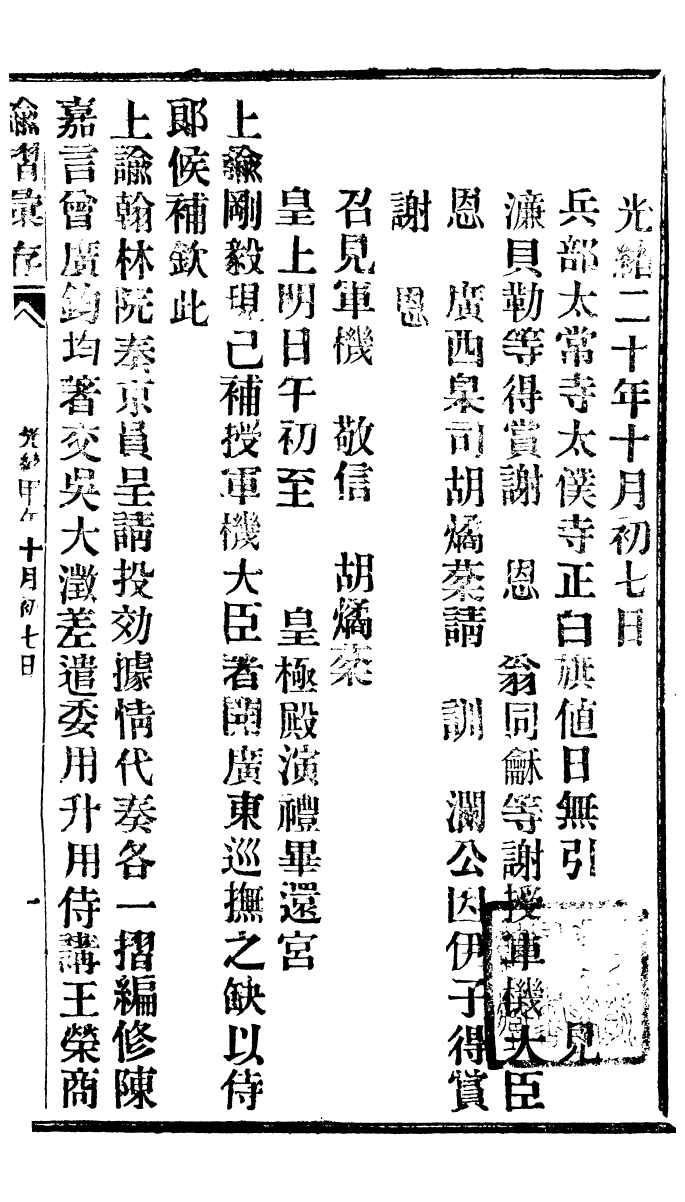 光緒二十年十月初七日
兵部太常寺太僕寺正白旗値日無引　見
濂貝勒等得賞謝　恩　翁同龢等謝授軍機大臣
恩　廣西臬司胡燏棻請　訓　瀾公因伊子得賞
謝　恩
召見軍機　敬信　胡燏棻
皇上明日午初至　皇極殿演禮畢還宮
上諭剛毅現已補授軍機大臣著開廣東巡撫之缺以侍
郞候補欽此
上諭翰林院奏京員呈請投効據情代奏各一摺編修陳
嘉言曾廣鈞均著交吳大澂差遣委用升用侍講王榮商
諭摺彙存
光緒甲午十月初七日
一